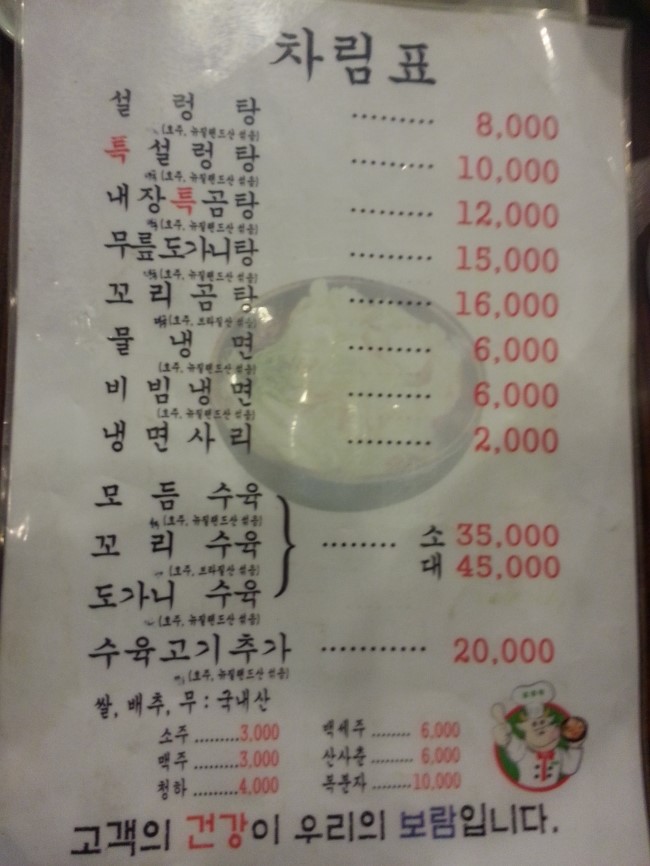 차림표
설렁탕 ......... 8,000
(호주, 뉴질랜드산 섞음)
특 설렁탕 ......... 10,000
(호주, 뉴질랜드산 섞음)
내장특곰탕 ......... 12,000
(호주, 뉴질랜드산 섞음)
무릎도가니탕 ......... 15,000
(호주, 뉴질랜드산 섞음)
꼬리곰탕 ......... 16,000
(호주, 브라질산 섞음)
물냉면 ......... 6,000
(호주, 뉴질랜드산 섞음)
비빔냉면 ......... 6,000
(호주, 뉴질랜드산 섞음)
냉면사리 ......... 2,000
모듬 수육
(호주, 뉴질랜드산 섞음)
꼬리 수육 ........ 소 35,000
대 45,000
(호주, 브라질산 섞음)
도가니 수육
(호주, 뉴질랜드산 섞음)
수육고기추가 ........... 20,000
(호주, 뉴질랜드산 섞음)
쌀, 배추, 무 : 국내산
소주 .........3,000 백세주 ........ 6,000
맥주 .........3,000 산사춘 ........ 6,000
청하 .........4,000 복분자 ........10,000
고객의 건강이 우리의 보람입니다.